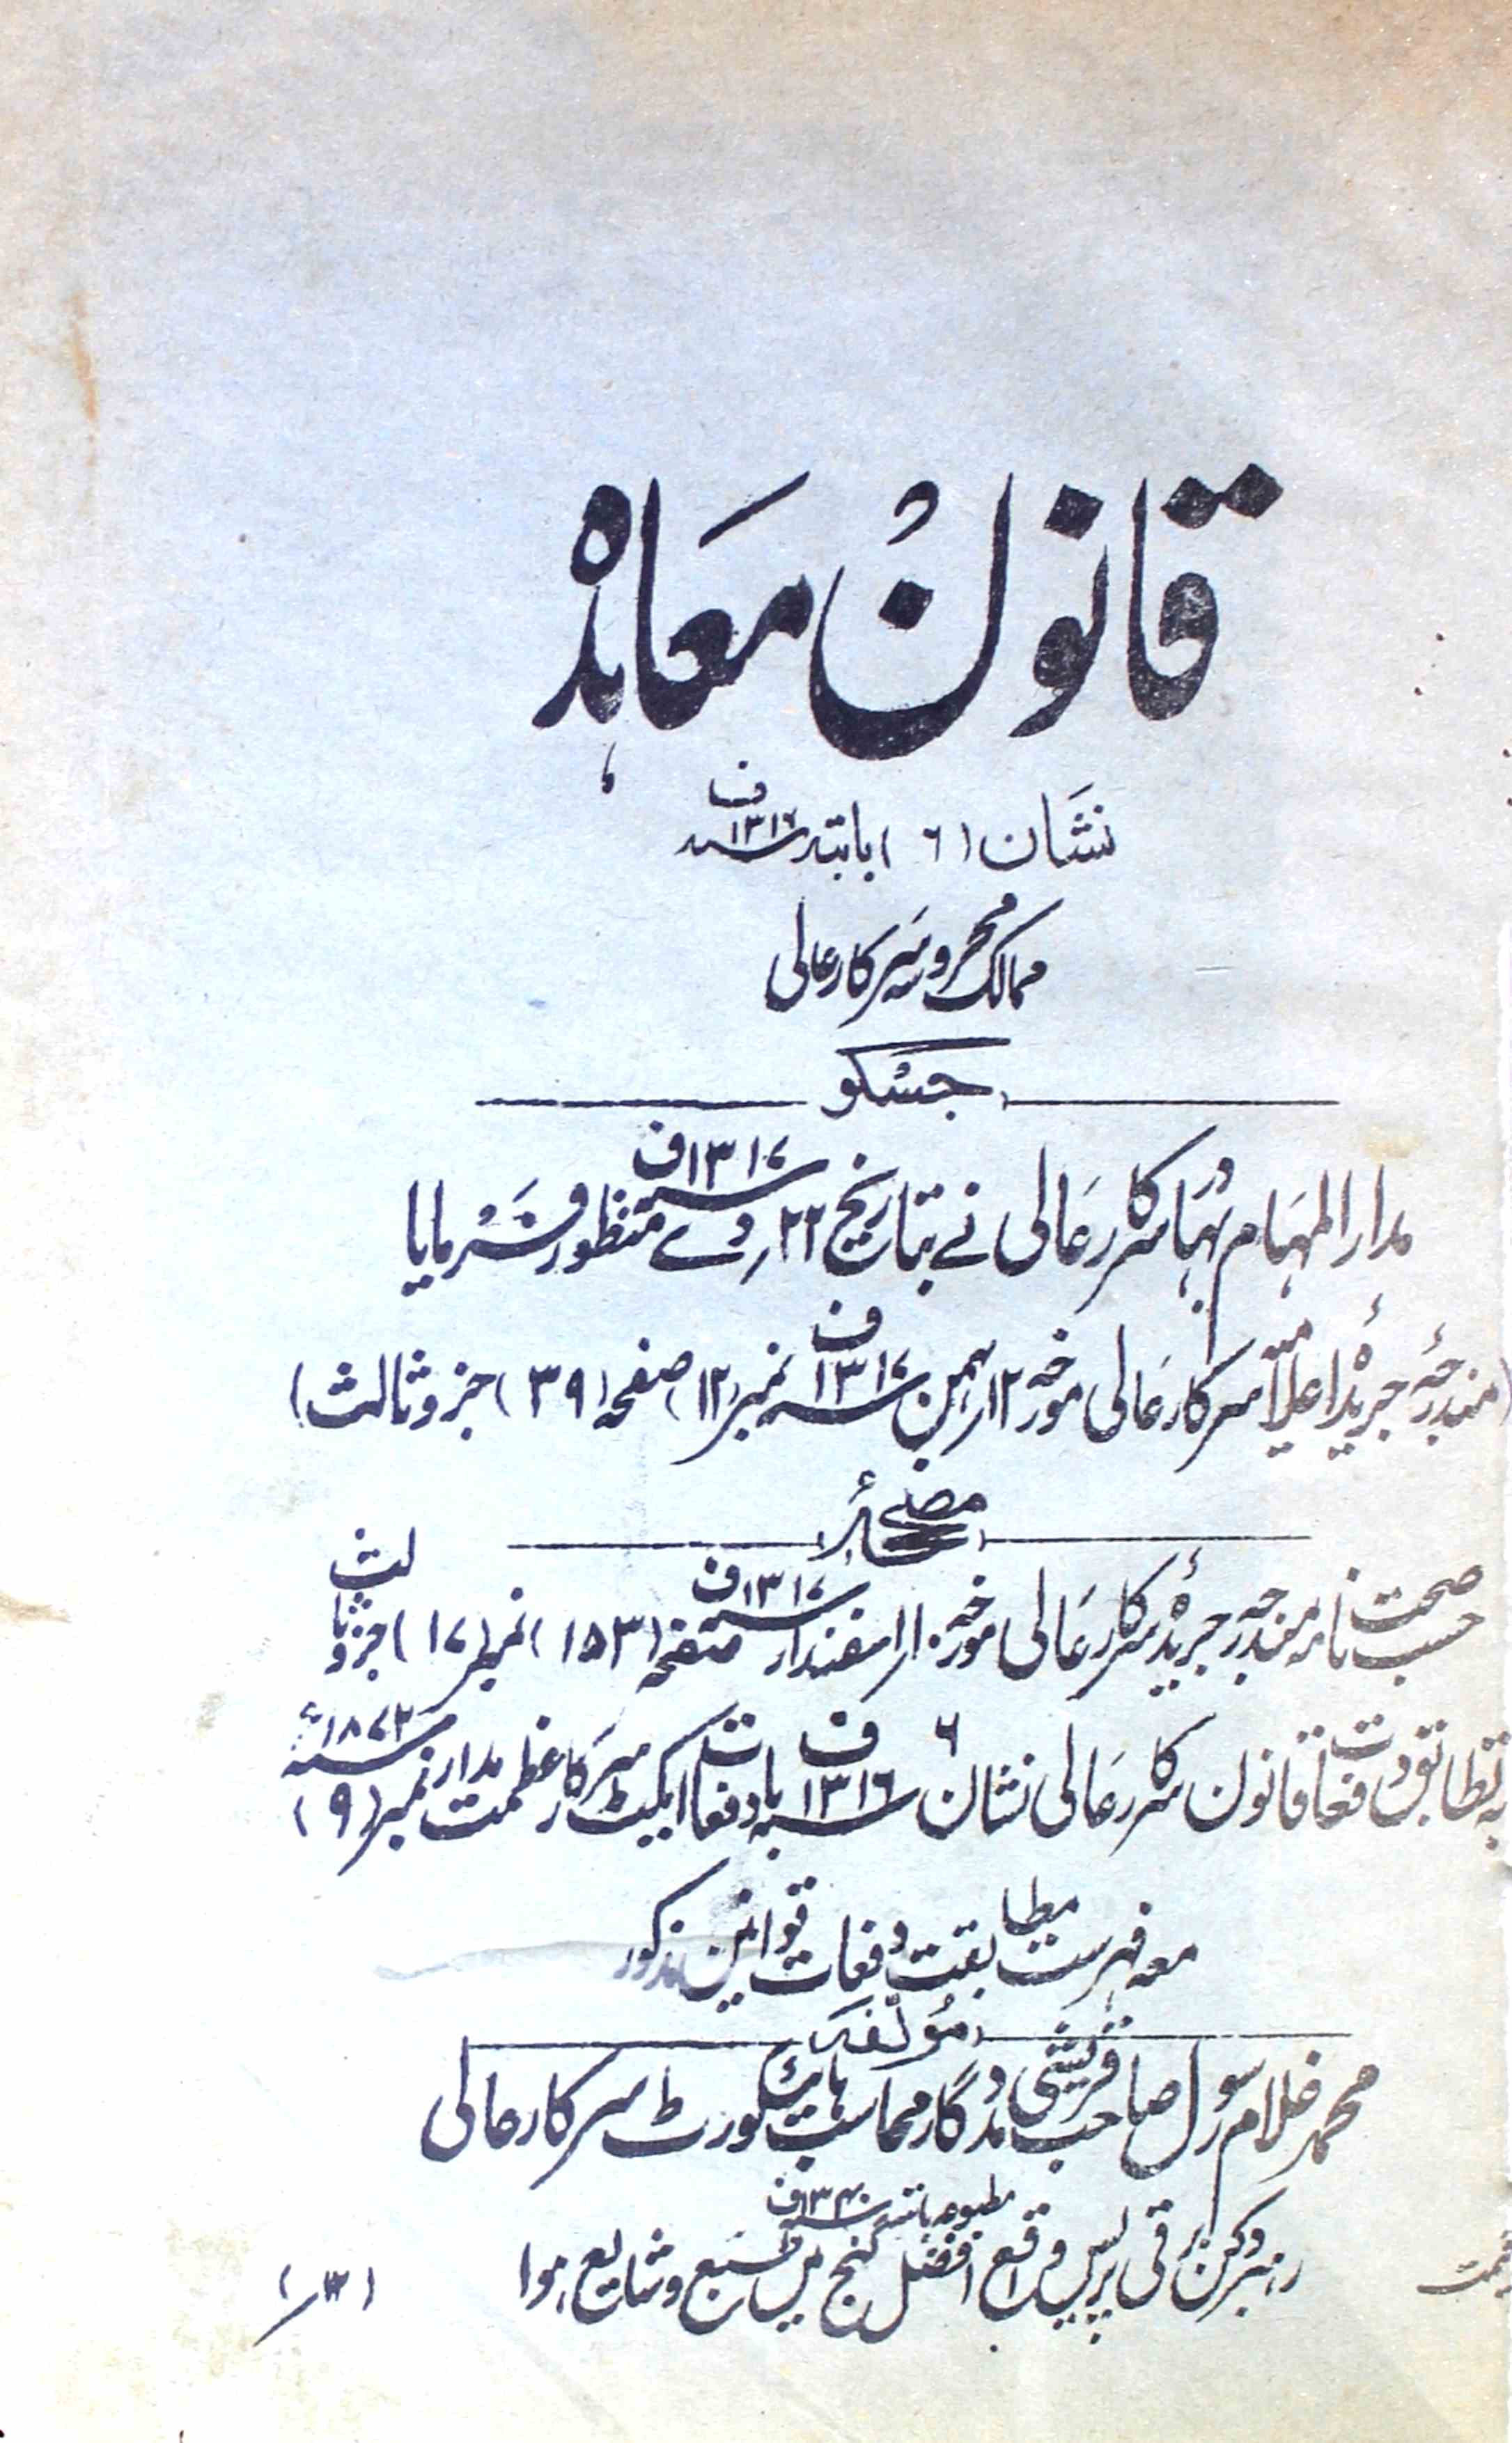 قانون معاہدہ
نشان (٦) بابتہ سنہ ١٣١٦ ف
ممالک محروسہ سرکار عالی
جسکو
مدار المہام بہادر سرکار عالی نے بتاریخ ٢٢ر دے سنہ ١٣١٧ ف منظور فرمایا
(مندرجۂ جریدۂ اعلامیہ سرکار عالی مورخہ ١٢ر بہمن سنہ ١٣١٧ ف نمبر (١٢) صفحہ (٣٩) جزو ثالث)
حسب صحت نامہ مندرجہ جریدۂ سرکار عالی مورخہ ١٠ر اسفندار سنہ ١٣١٧ ف صفحہ (١٥٣) نمبر (١٧) جزو ثالث
بہ تطابق دفعات قانون سرکار عالی نشان ٦ سنہ ١٣١٦ ف با دفعات ایکٹ سرکار عظمت مدار نمبر (٩) سنہ ١٨٧٢ء
معہ فہرست مطابقت دفعات قوانین مذکور
مؤلفہ
محمد غلام رسول صاحب قریشی مددگار محاسب ہائیکورٹ سرکار عالی
مطبوعہ بابتہ سنہ ١٣٤٠ ف
رہبر دکن برقی پریس واقع افضل گنج میں طبع و شایع ہوا
قیمت